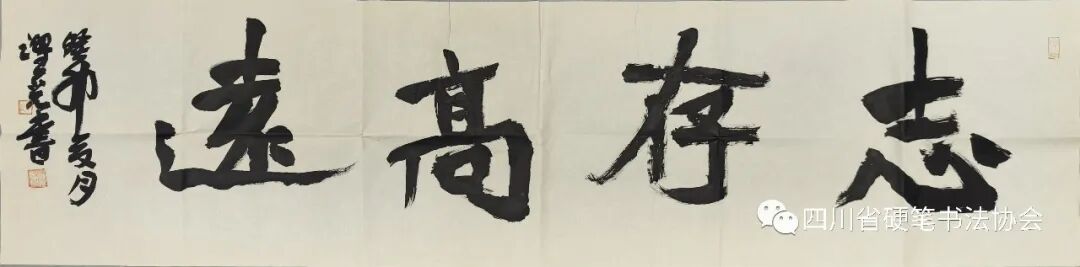 志存高遠
癸卯夏月
書
四川省硬笔书法协会